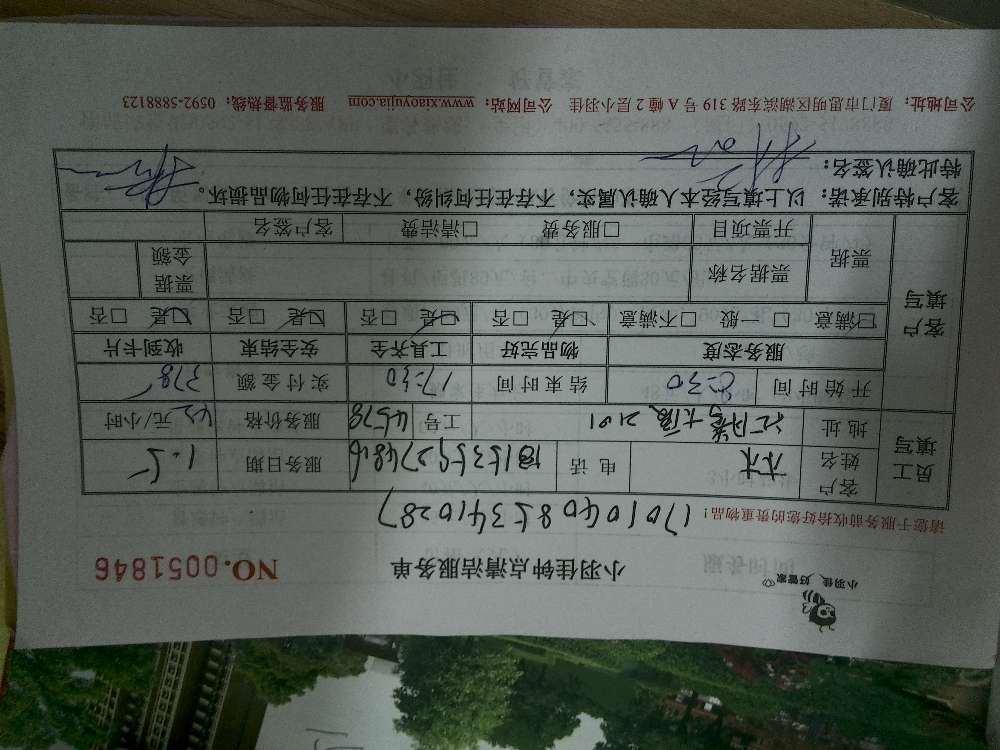 小羽佳 好管家
小羽佳钟点清洁服务单 NO.0051846
请您于服务前收拾好您的贵重物品! 1701040853410287
员工填写 客户姓名 木木 电话 服务日期 1.5
地址 2101 工号 4578 服务价格 42元/小时
客户填写 开始时间 8:30 结束时间 17:30 实付金额 378
服务态度 物品完好 工具齐全 安全结束 收到卡片
□满意 □一般 □不满意 □是 □否 □是 □否 □是 □否 □是 □否
票据 票据名称 票据金额
开票项目 □服务费 □清洁费 客户签名
客户特别承诺:以上填写经本人确认属实,不存在任何纠纷,不存在任何物品损坏。
特此确认签名:
公司地址:厦门市思明区湖滨东路 319 号 A 幢 2 层小羽佳 公司网站:www.xiaoyujia.com 服务监督热线:0592-5888123